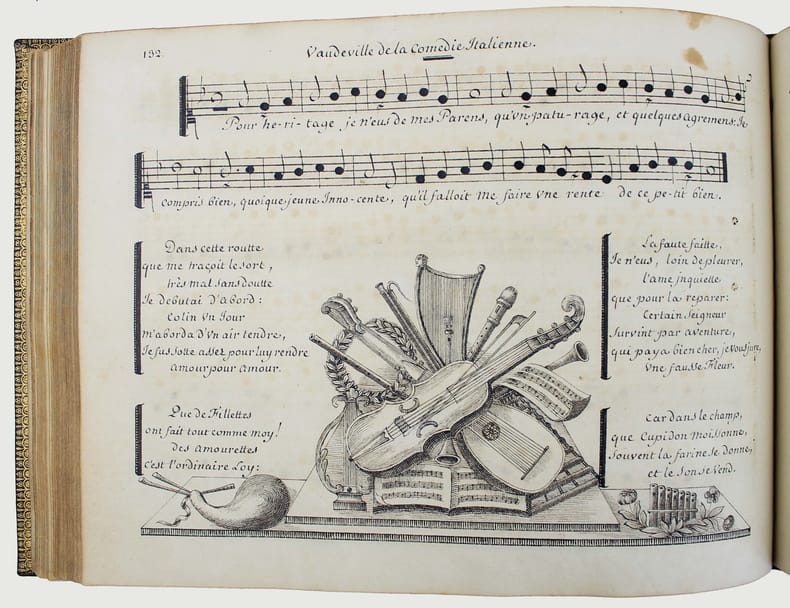 192
Vaudeville de la Comedie Italienne.
Pour he-ri-tage, je n'eus de mes Parens, qu'vn patu-rage, et quelques agremens: Je
compris bien, quoique jeune Inno-cente, qu'il falloit me faire vne rente de ce pe-tit bien.
Dans cette routte
que me traçoit le sort,
très mal sans doutte
Je debutai d'abord:
Colin vn Jour
m'aborda d'vn air tendre,
Je fus sotte assez pour luy rendre
amour pour amour.
Que de Fillettes
ont fait tout comme moy!
des amourettes
c'est l'ordinaire Loy:
La faute faitte,
Je n'eus, loin de pleurer,
l'ame jnquiette
que pour la reparer:
Certain Seigneur
survint par aventure,
qui paya bien cher, je vous jure,
vne fausse Fleur.
Car dans le champ,
que Cupidon moissonne,
souvent la farine se donne,
et le son se vend.